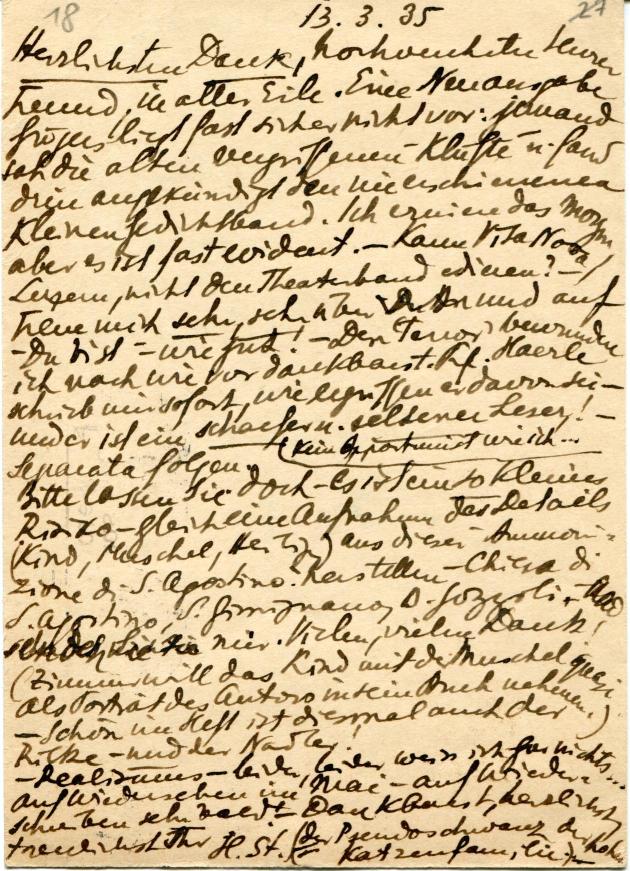 18
27
13. 3. 35
Herzlichsten Dank, hochverehrter teurer
Freund, in aller Eile. Eine Neuausgabe
liegt fast sicher nicht vor: jemand
sah die alten vergriffenen Klüfte u. fand
drin angekündigt den nie erschienenen
kleinen Gedichtband. Ich das morgen
aber es ist fast evident. – Kann Vita Nova,
Luzern, nicht den Theaterband edieren? –
Freue mich sehr, sehr und auf
– Du bist – wie gut! – Der Tenor bewundre
ich nach wie vor dankbarst. Prof. Haerle
schrieb mir sofort, wie ergriffen er davon sei –
und er ist ein scharfer u. seltener Leser! –
(kein Opportunist wie ich ...
Separata folgen.
Bitte lassen Sie doch – es ist ein so kleines
Risiko – gleich eine Aufnahme des Details
(Kind, Muschel, Heilige) aus dieser Ammoni=
zione di S. Agostino herstellen – Chiesa di
S. Agostino, S. Gimignano, B. Gozzoli – und
senden Sie sie mir. Vielen, vielen Dank!
(Zimmer will das Kind mit der Muschel quasi
als Porträt des Autors in sein Buch nehmen.)
– Schön im Heft ist diesmal auch der
Rilke – und der Nadler!
– Realismus – leider, leider weiss ich gar nichts ...
auf Wiedersehen im Mai – auf Wieder=
schreiben sehr bald! – Dankbarst, herzlichst,
treulichst Ihr H. St. (der Pseudoschwanz der hohen
Katzenfamilie)